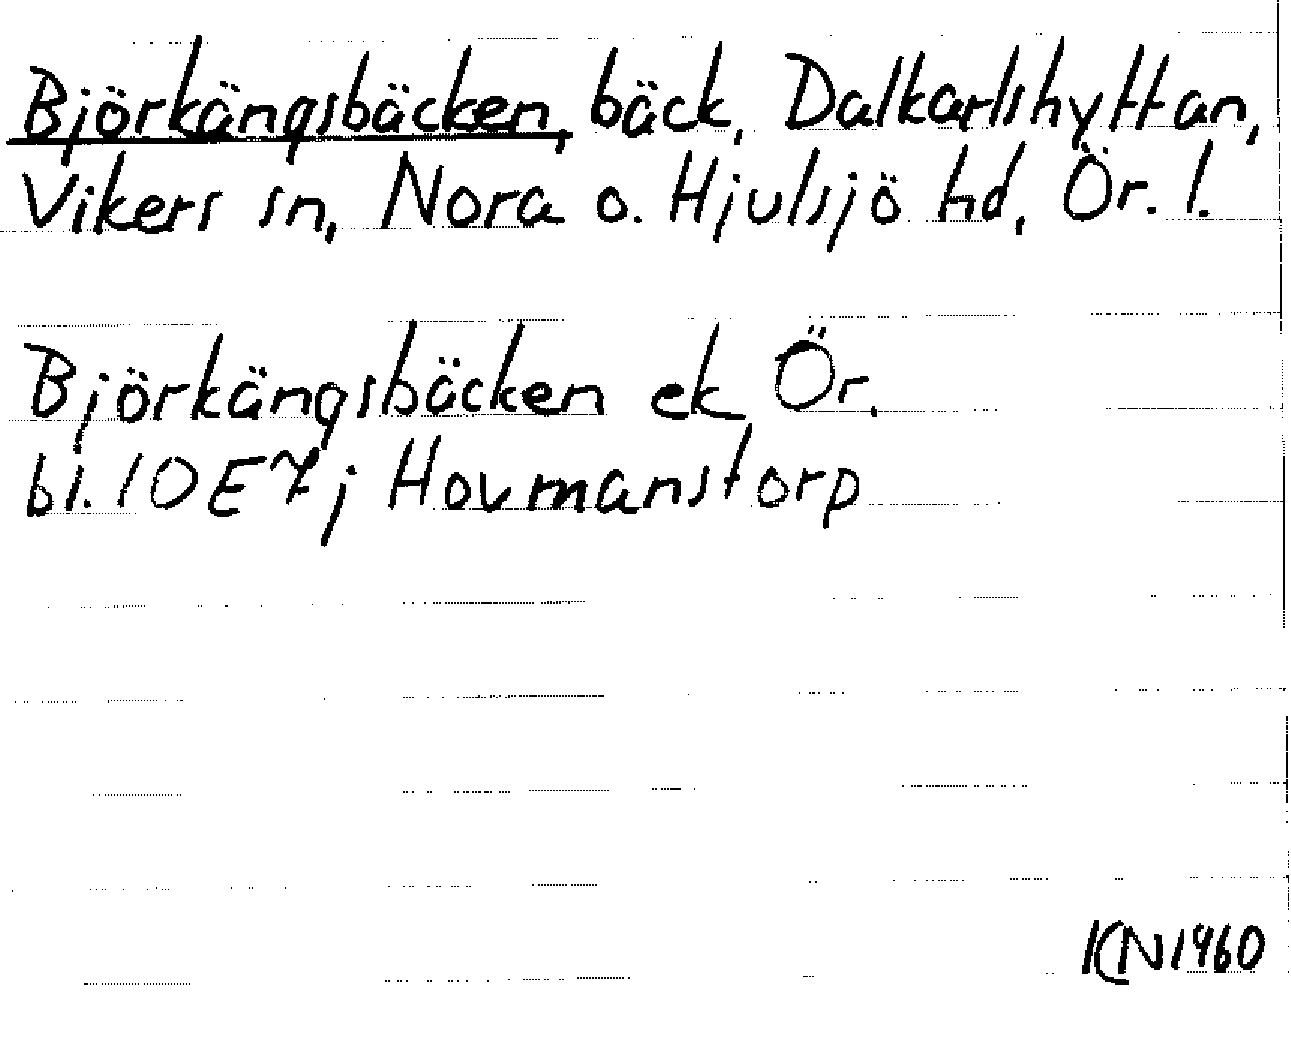 Björkängsbäcken, bäck, Dalkarlshyttan,
Vikers sn, Nora o. Hjulsjö hd, Ör. l.
Björkängsbäcken ek Ör.
bl. 10 E 7 j Hovmanstorp
KN 1960